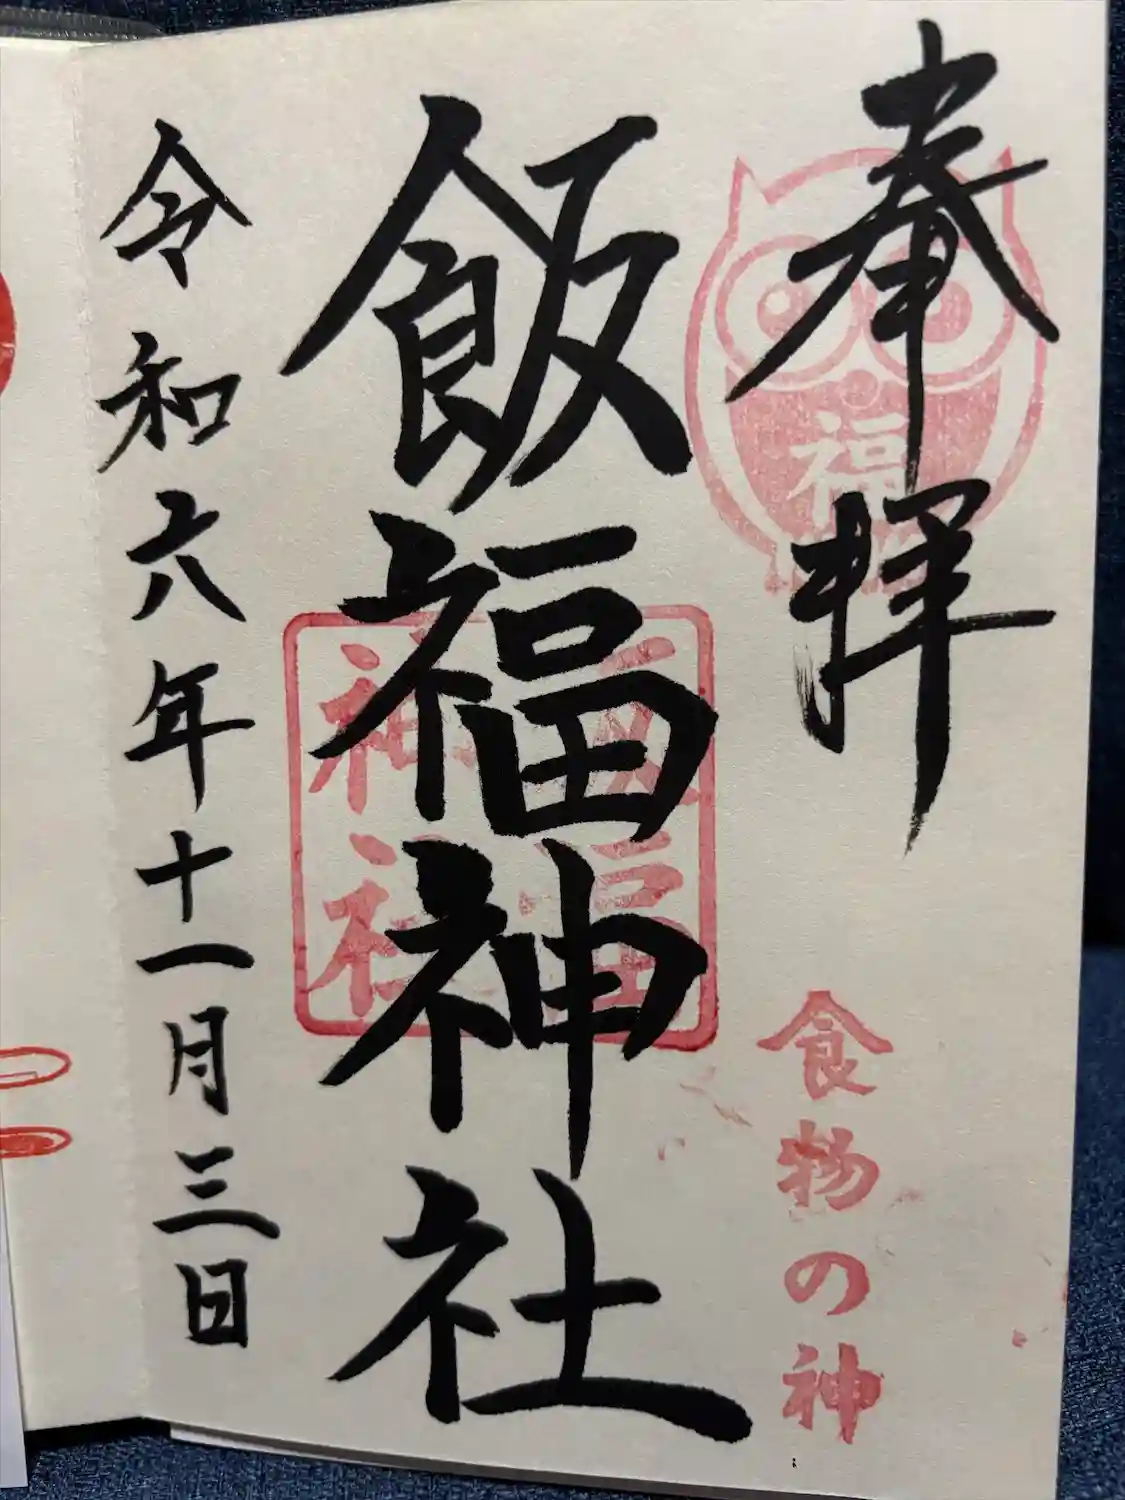 奉拝
福
食物の神
飯福神社
飯福
神社
令和六年十一月三日